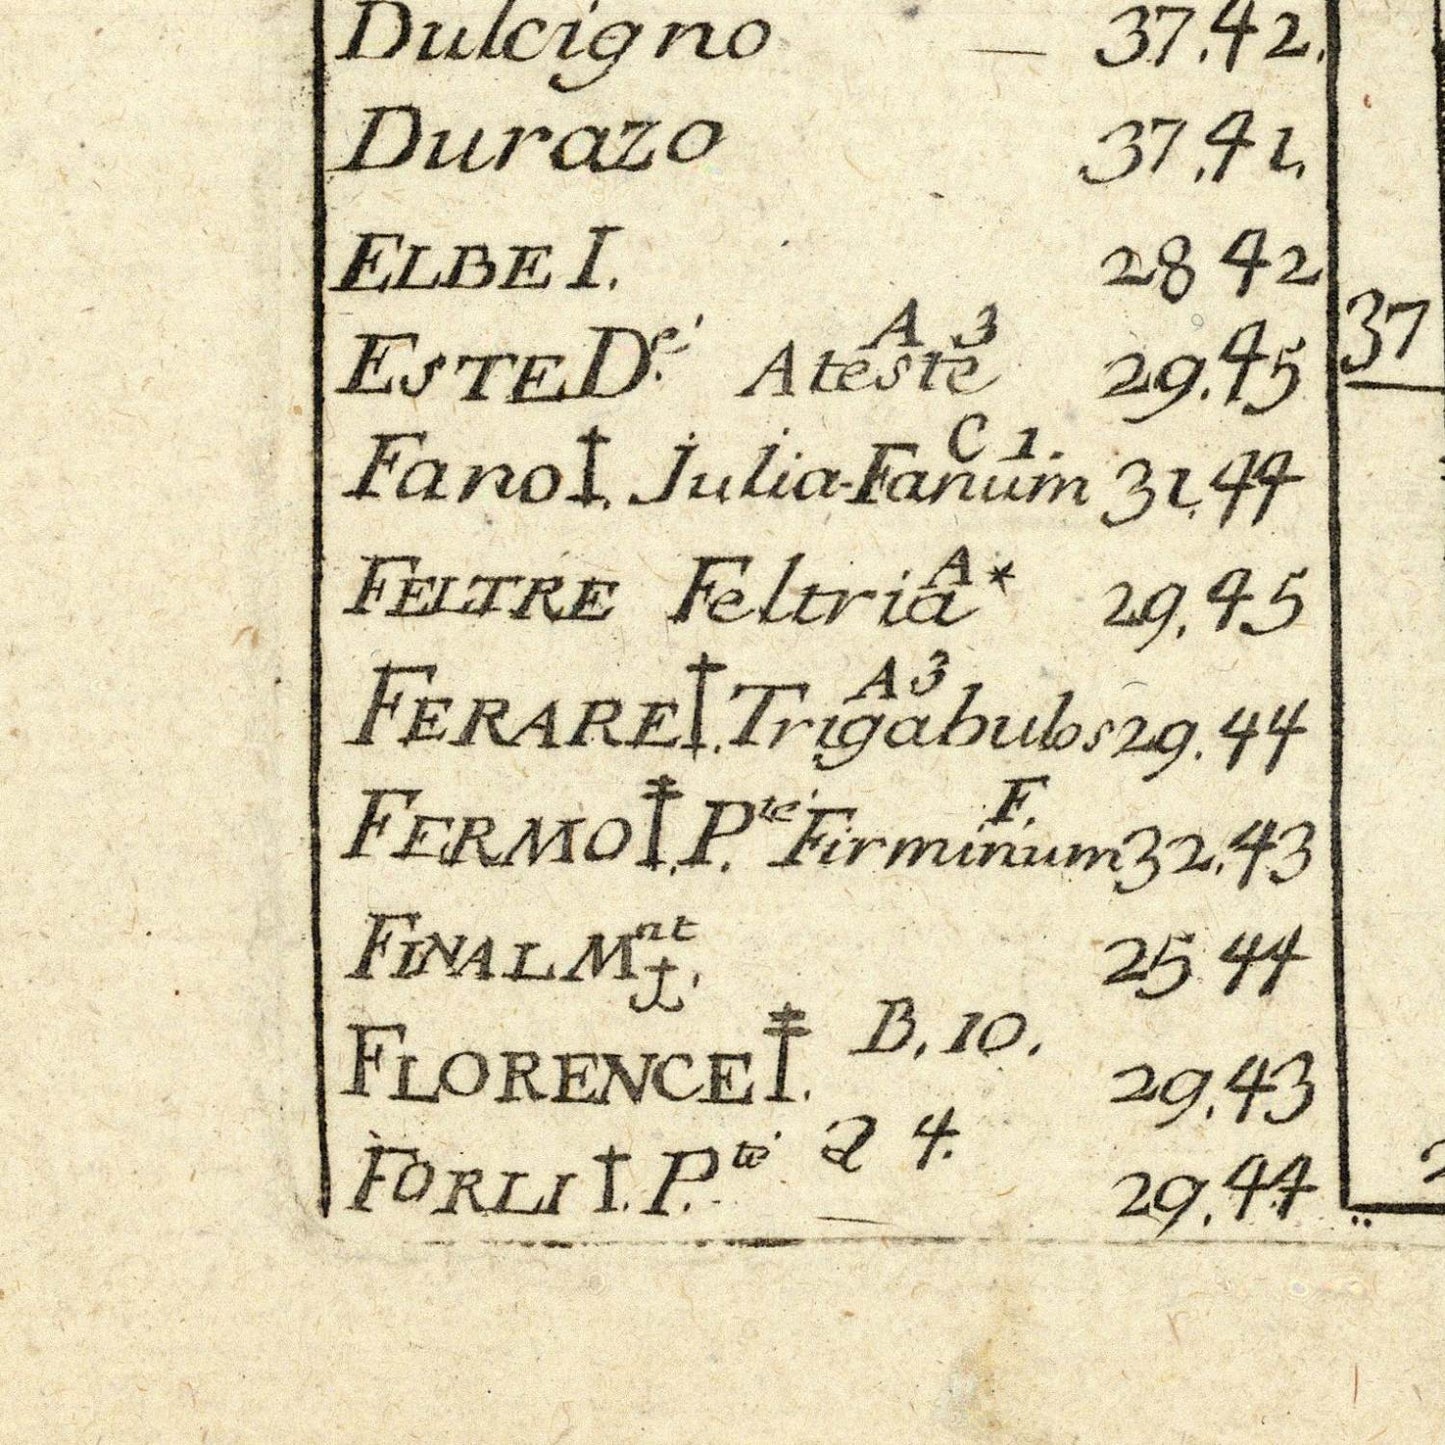 Dulcigno — 37.42.
Durazo 37.41.
ELBE I. 28 42
ESTE D.é Ateste A 3 29.45
Fano †. Julia-Fanum C 1. 31.44
FELTRE Feltria A* 29.45
FERARE †. Trigabulos A3 29.44
FERMO ‡. P.té Firminum F. 32.43
FINAL Mnt ⚓. 25 44
FLORENCE ‡. B. 10. 29.43
FORLI †. P.té 4. 29.44
37